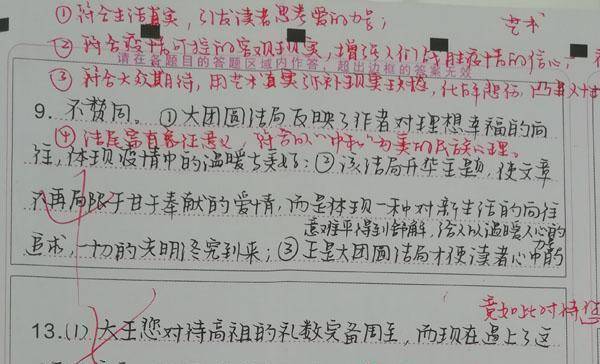 艺术
①符合生活真实，引发读者思考爱的力量；
②符合疫情可控的客观现实，增强人们战胜疫情的信心；
请在各题目的答题区域内作答，超出边框的答案无效
③符合大众期待，用艺术真实弥补现实
9. 不赞同。①大团圆结局反映了作者对理想幸福的向
④结尾富有象征意义，符合以“中和”为美的民族心理。
往，体现疫情中的温暖与美好；②该结局升华主题，使文章
不再局限于甘于奉献的爱情，而是体现一种对新生活的向往
意难平得到舒解，给人以温暖人心的
力量
追求，一切的光明终究到来；③正是大团圆结局才使读者心中的
竟如此对待
13.(1) 大王您对待高祖的礼数完备周至，而现在遇上了这